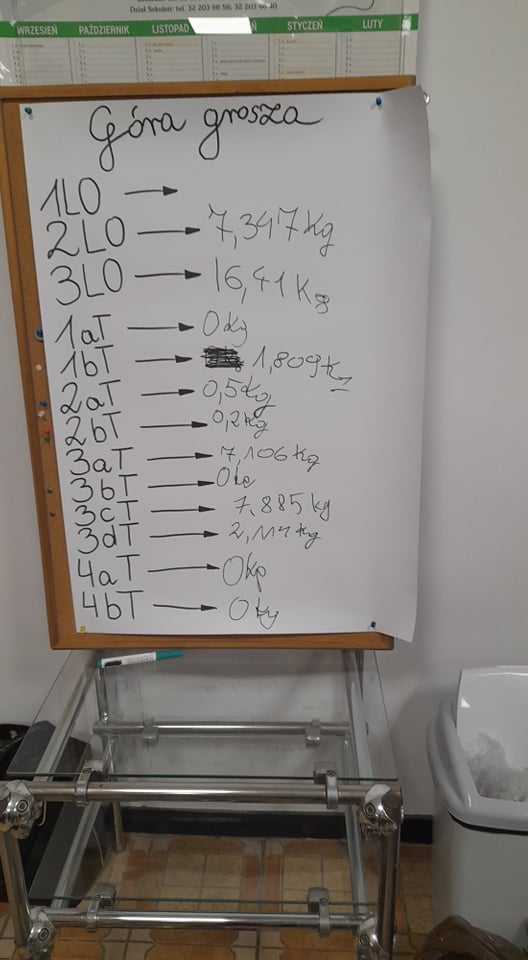 Dział Szkoleń: tel. 32 203 66 56; 32 203 66 40
WRZESIEŃ PAŹDZIERNIK LISTOPAD STYCZEŃ LUTY
Góra grosza
1LO →
2LO → 7,347 kg
3LO → 16,41 Kg
1aT → 0 kg
1bT → 1,809 Kg
2aT → 0,5 kg
2bT → 0,2 kg
3aT → 7,106 kg
3bT → 0 kg
3cT → 7,885 kg
3dT → 2,114 kg
4aT → 0 kg
4bT → 0 kg